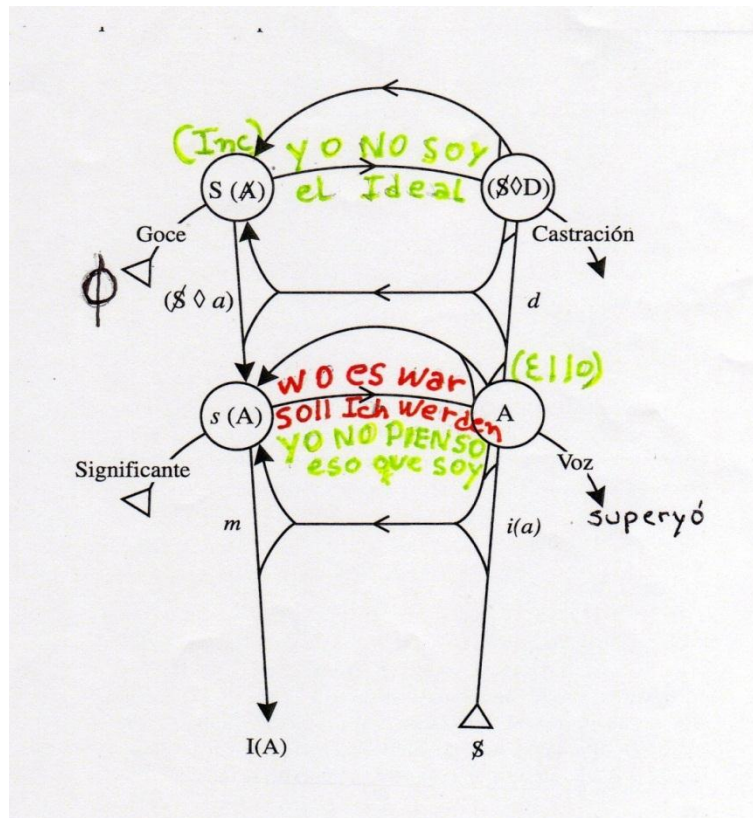 (Inc) YO NO SOY
S (Ⱥ) el Ideal ($◊D)
Goce Castración
ϕ
($ ◊ a) d
(Ello)
wo es war
s (A) soll Ich werden A
YO NO PIENSO
eso que soy
Significante Voz
superyó
m i(a)
I(A) $